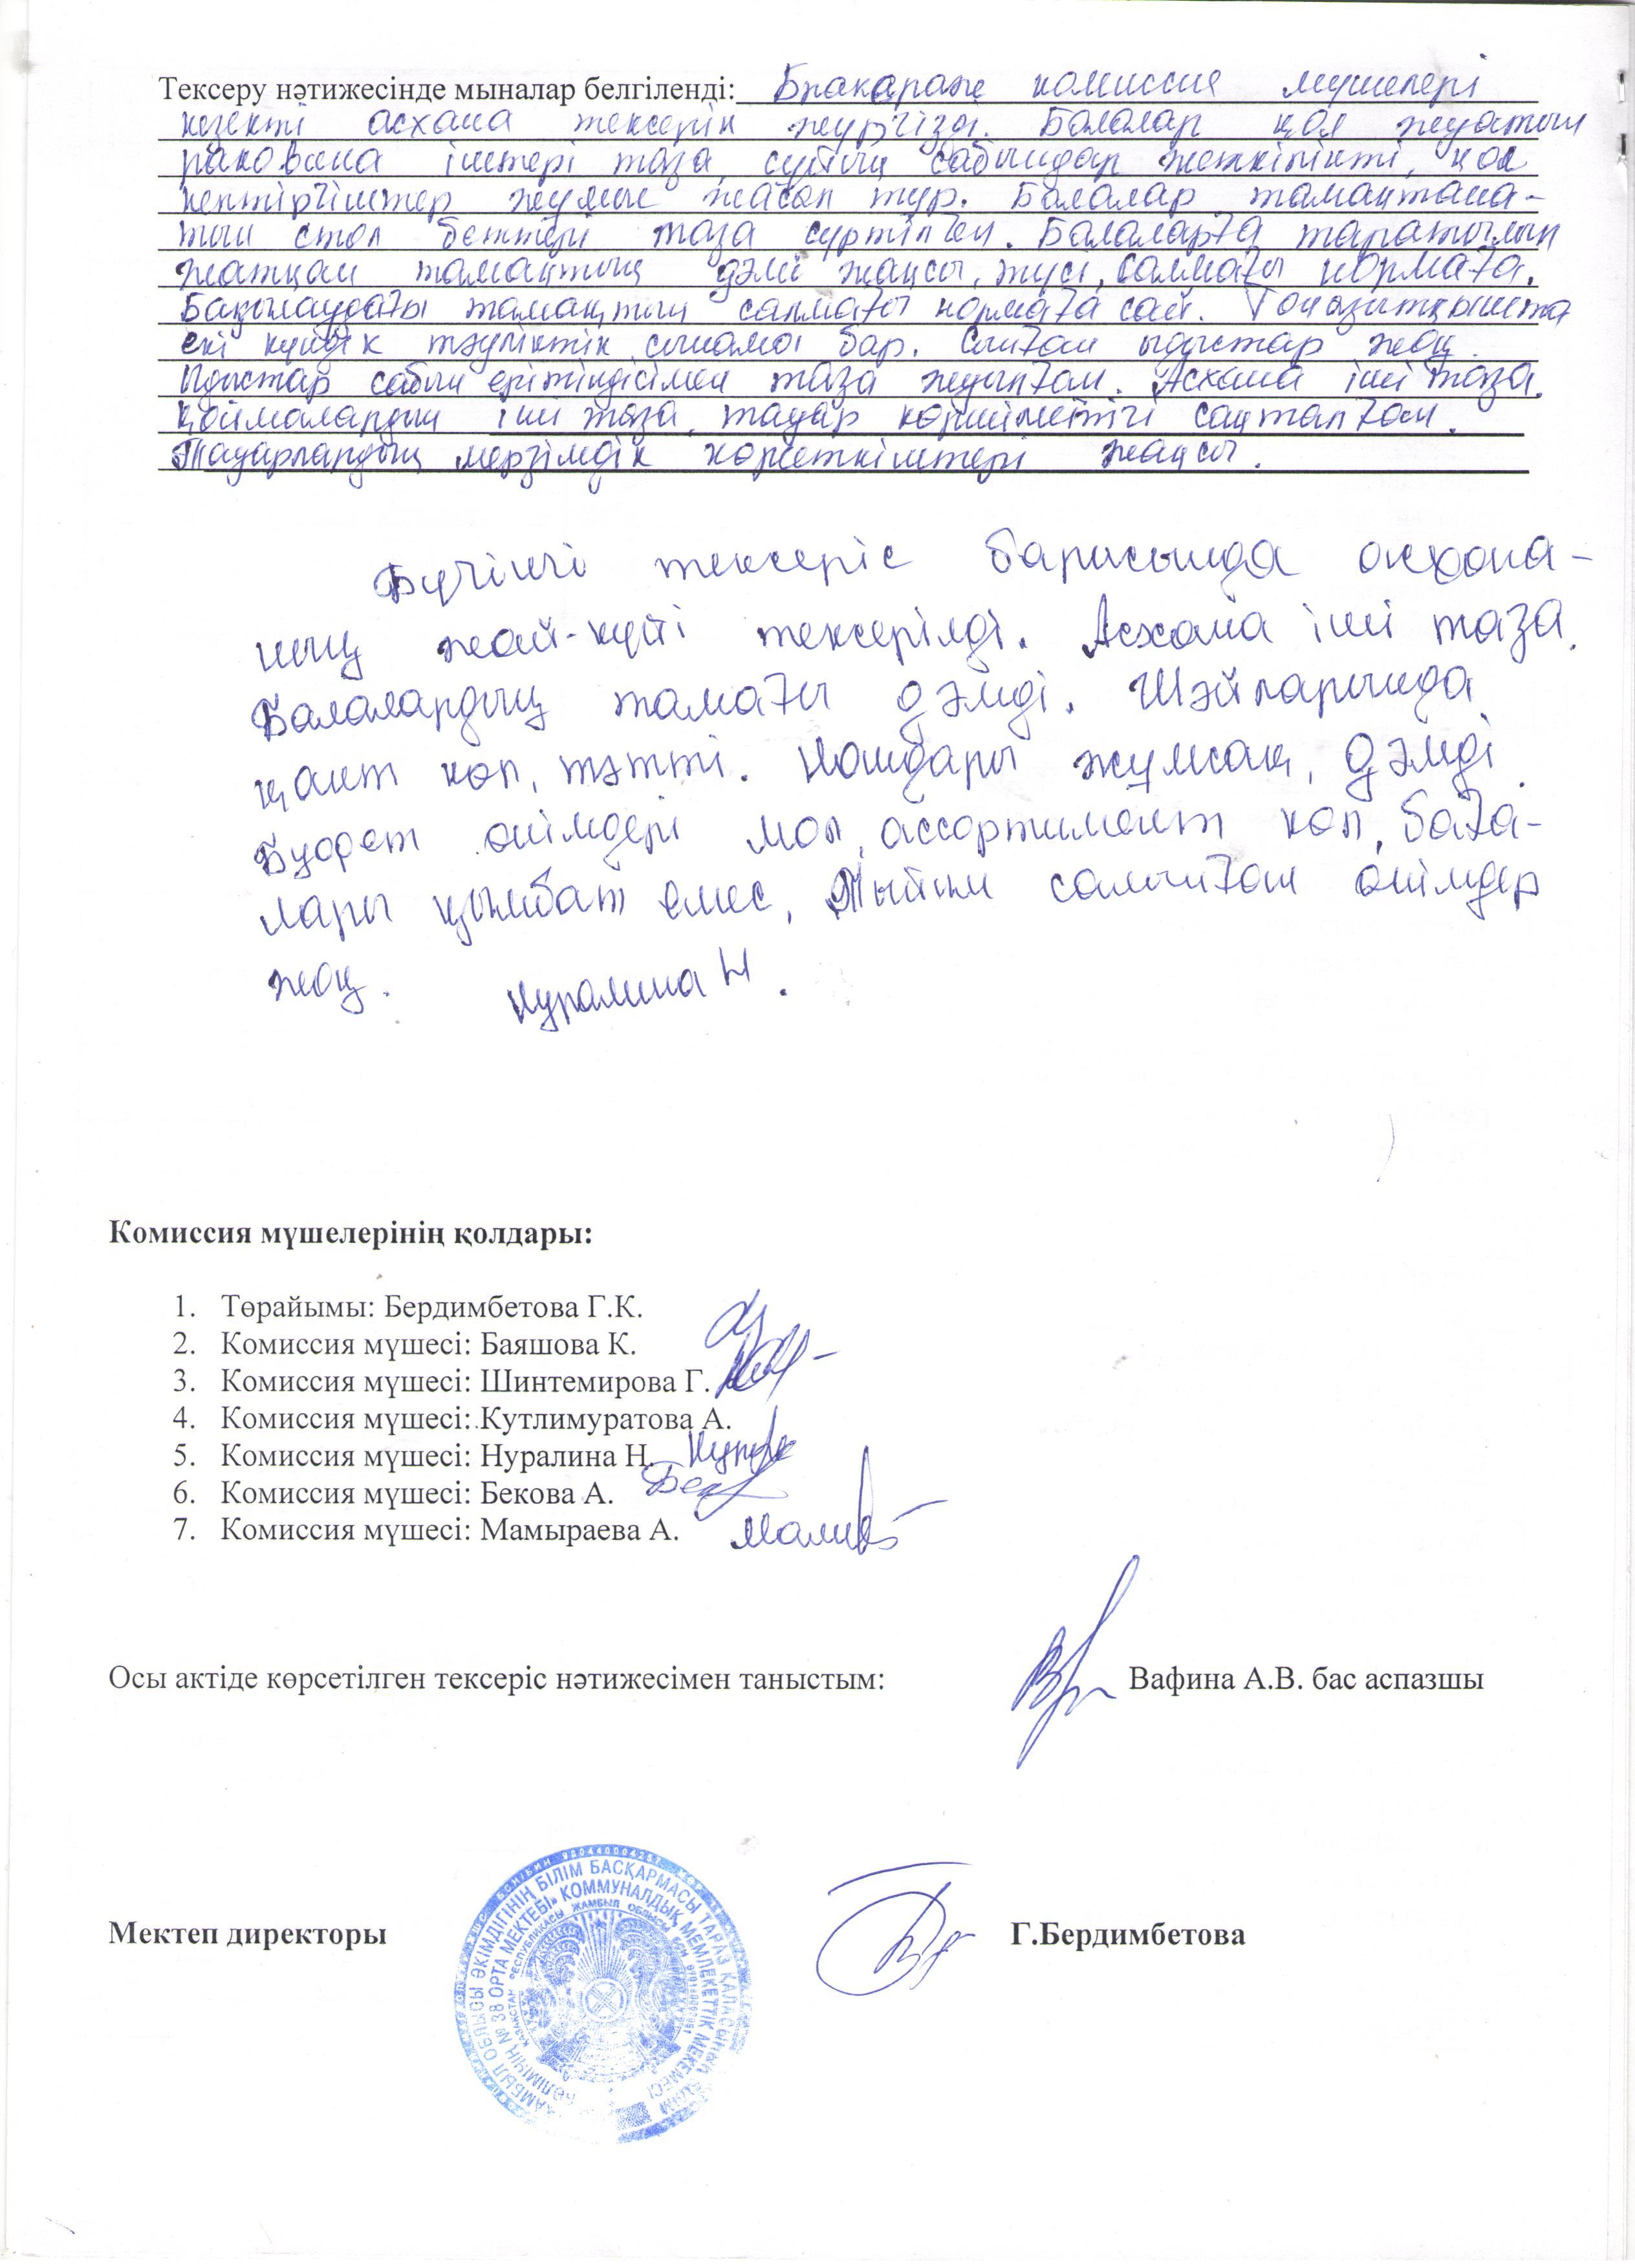 Тексеру нәтижесінде мыналар белгіленді: Бракераж комиссия мүшелері
кезекті асхана тексерін жүргізді. Балалар қол жуатын
раковина іштері таза, сұйық сабындар жеткілікті, қол
кептіргіштер жұмыс жасап тұр. Балалар тамақтана-
тын стол беттері таза сүртілген. Балаларға таратылып
жатқан тамақтың дәмі жақсы, түсі, салмағы нормаға.
Бақылаудағы тамақтың салмағы нормаға сай. Тоңазытқышта
екі күндік тәуліктік сынамы бар. Сынған ыдыстар жоқ.
Ыдыстар сабын ерітіндісімен таза жуылған. Асхана іші таза.
Қоймалардың іші таза, тауар көршілестігі сақталған.
Тауарлардың мерзімдік көрсеткіштері жақсы.
Бүгінгі тексеріс барысында асхана-
ның жай-күйі тексерілді. Асхана іші таза.
Балалардың тамағы дәмді. Шәйларында
қант көп, тәтті. Нандары жұмсақ, дәмді.
Буфет өнімдері мол, ассортимент көп, баға-
лары қымбат емес, Тыйым салынған өнімдер
жоқ. Нуралина Н.
Комиссия мүшелерінің қолдары:
1. Төрайымы: Бердимбетова Г.К.
2. Комиссия мүшесі: Баяшова К.
3. Комиссия мүшесі: Шинтемирова Г.
4. Комиссия мүшесі: Кутлимуратова А.
5. Комиссия мүшесі: Нуралина Н.
6. Комиссия мүшесі: Бекова А.
7. Комиссия мүшесі: Мамыраева А.
Осы актіде көрсетілген тексеріс нәтижесімен таныстым: Вафина А.В. бас аспазшы
Мектеп директоры Г.Бердимбетова
ЖАМБЫЛ ОБЛЫСЫ ӘКІМДІГІНІҢ БІЛІМ БАСҚАРМАСЫ ТАРАЗ ҚАЛАСЫНЫҢ БІЛІМ
БӨЛІМІНІҢ № 38 ОРТА МЕКТЕБІ» КОММУНАЛДЫҚ МЕМЛЕКЕТТІК МЕКЕМЕСІ
ҚАЗАҚСТАН РЕСПУБЛИКАСЫ ЖАМБЫЛ ОБЛЫСЫ